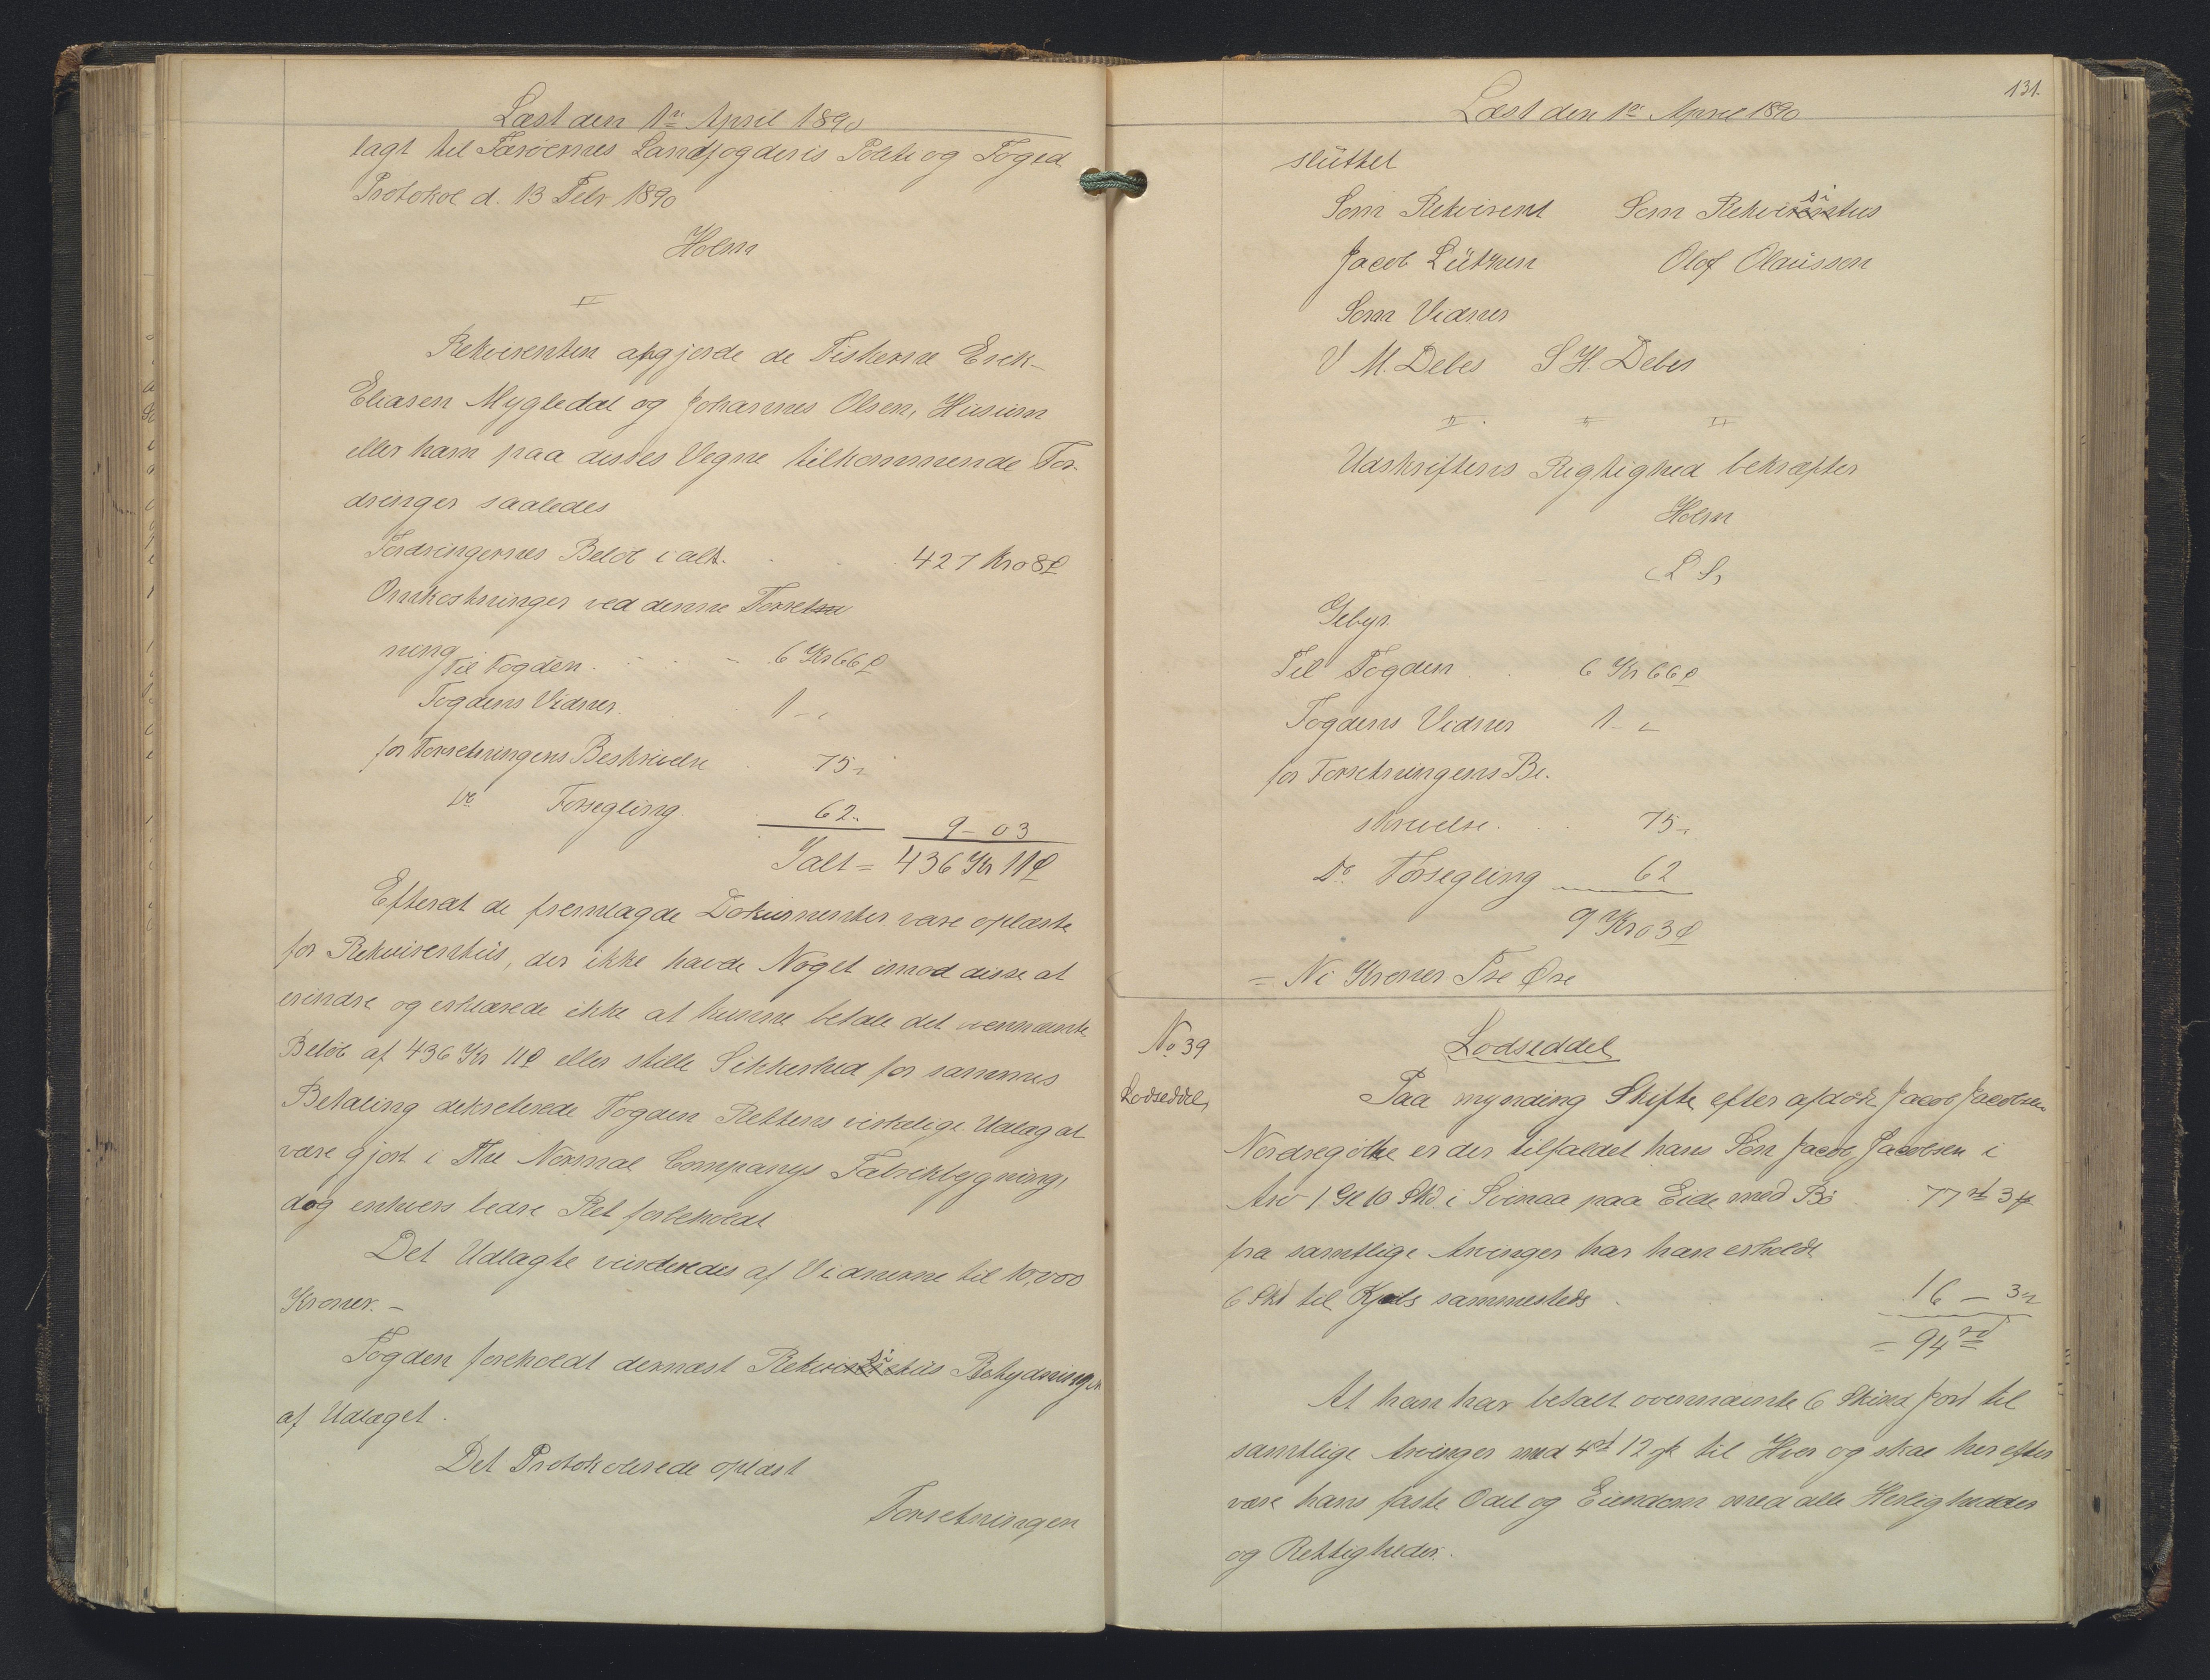 Læst den 1ste April 1890
lagt til Færøernes Landfogderis Politi og Foged
Protokol d. 13 Febr 1890
Holm
Rekvirenten opgjorde de Fiskerne Erik
Eliasen Mygledal og Johannes Olsen, Husum
eller ham paa disses Vegne tilkommende For-
dringer saaledes
Fordringernes Beløb i alt. 427 Kr 08 Ø
Omkostninger ved denne Forret
ning til Fogden. 6 Kr 66 Ø
Fogdens Vidner 1 - "
for Forretningens Beskrivelse 75 "
Do Forsegling 62 " 9 - 03
Ialt = 436 Kr 11 Ø
Efterat de fremlagde Dokumenter vare oplæste
for Rekvirentus, der ikke havde Noget imod disse at
erindre og erklærede ikke at kunne betale det ovennævnte
Beløb af 436 Kr 11 Ø eller stille Sikkerhed for sammes
Betaling dekreterede Fogden Rettens virkelige Udlæg at
være gjort i The Normal Companys Fabrikbygning,
dog enhvers bedre Ret forbeholdt
Det Udlagte vurderedes af Vidnerne til 10,000
Kroner. -
Fogden foreholdt dernæst Rekvisitus Betydningen
af Udlæget.
Det Protokollerede oplæst
Forretningen
131.
Læst den 1ste April 1890
sluttet
Som Rekvirent Som Rekvisitus
Jacob Lützen Olof Olausson
Som Vidner
V M. Debes S H. Debes
Udskriftens Rigtighed bekræfter
Holm
L S,
Gebyr.
Til Fogden 6 Kr 66 Ø
Fogdens Vidner 1 - "
for Forretningens Be-
skrivelse. 75 "
Do Forsegling 62
9 Kr 03 Ø
= Ni Kroner Tre Øre
No 39 Lodseddel
Lodseddel Paa mynding Skifte efter afdøde Jacob Jacobsen
Nordregøthe er der tilfaldet hans Søn Jacob Jacobsen i
Arv 1 Gl 10 Skd i Svinaa paa Eide med Bø 77 rd 3 β
fra samtlige Arvinger har han erholdt
6 Skd til Kjøbs sammesteds 16 - 3 "
= 94 rd
At han har betalt ovennævnte 6 Skind Jord til
samtlige Arvinger med 4 rd 12 β til Hver og skal herefter
være hans faste Odel og Eiendom med alle Herligheder
og Rettigheder.